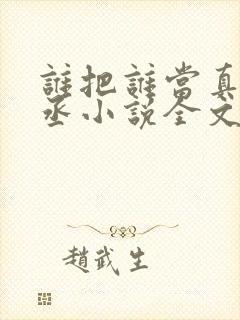 誰把誰當真
丞小說全文
趙武生